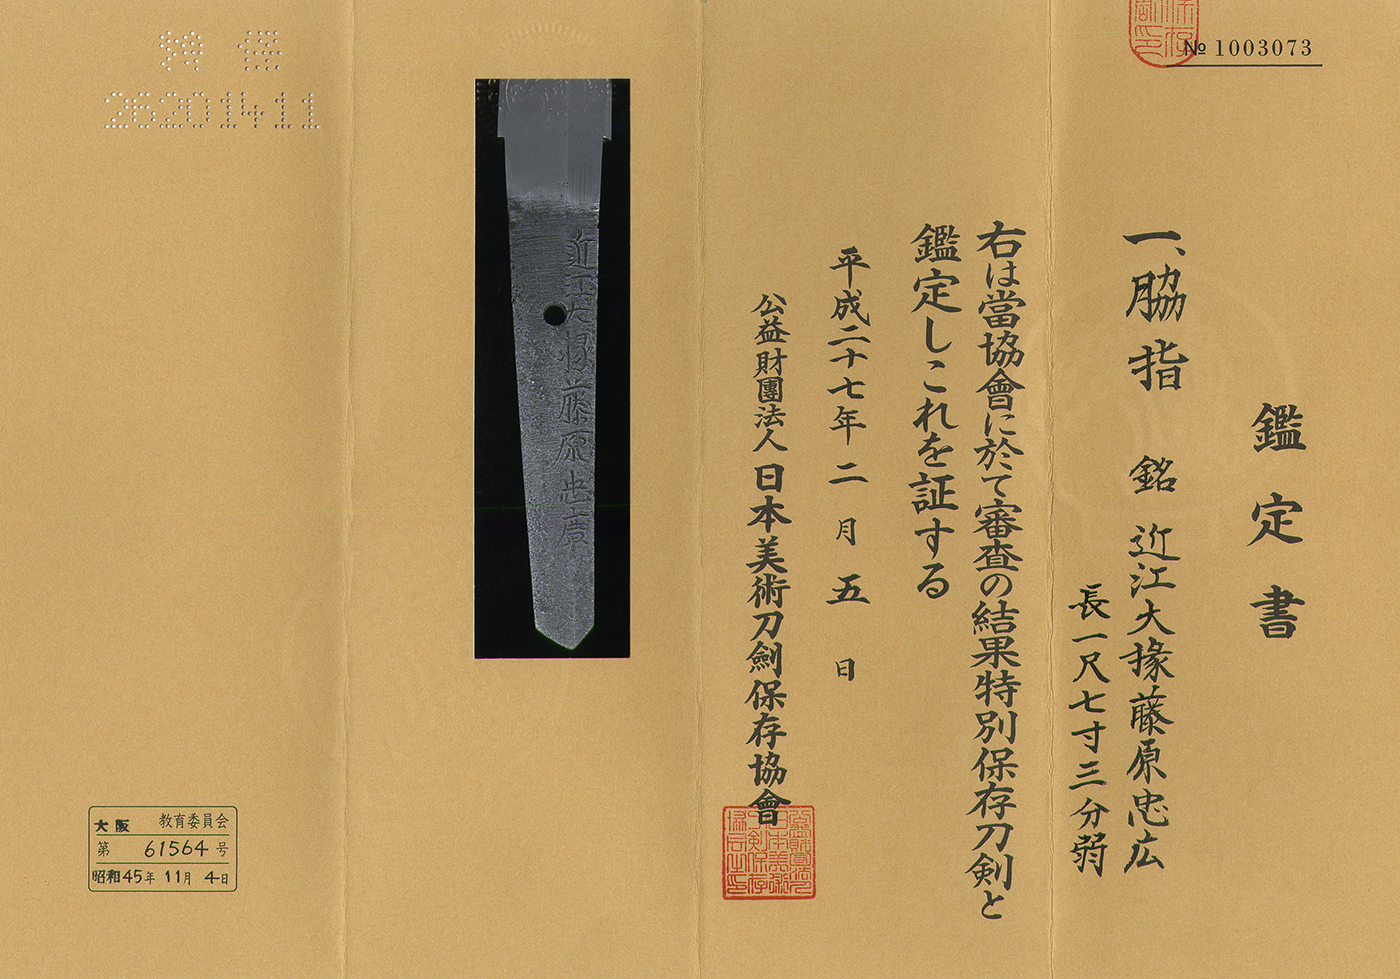 № 1003073
鑑定書
一、脇指 銘 近江大掾藤原忠広
長一尺七寸三分弱
右は當協會に於て審査の結果特別保存刀剣と
鑑定しこれを証する
平成二十七年二月五日
公益財團法人 日本美術刀劍保存協會
近江大掾藤原忠廣
26201411
大阪 教育委員会
第 61564 号
昭和45年 11月 4日